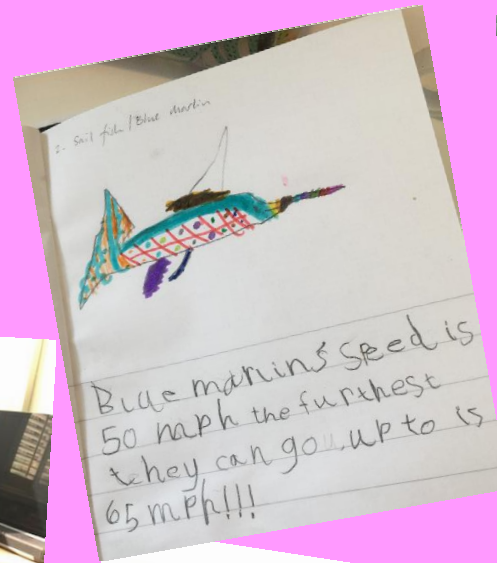 2. Sail fish / Blue marlin
Blue marlins speed is
50 mph the furthest
they can go up to is
65 mph!!!